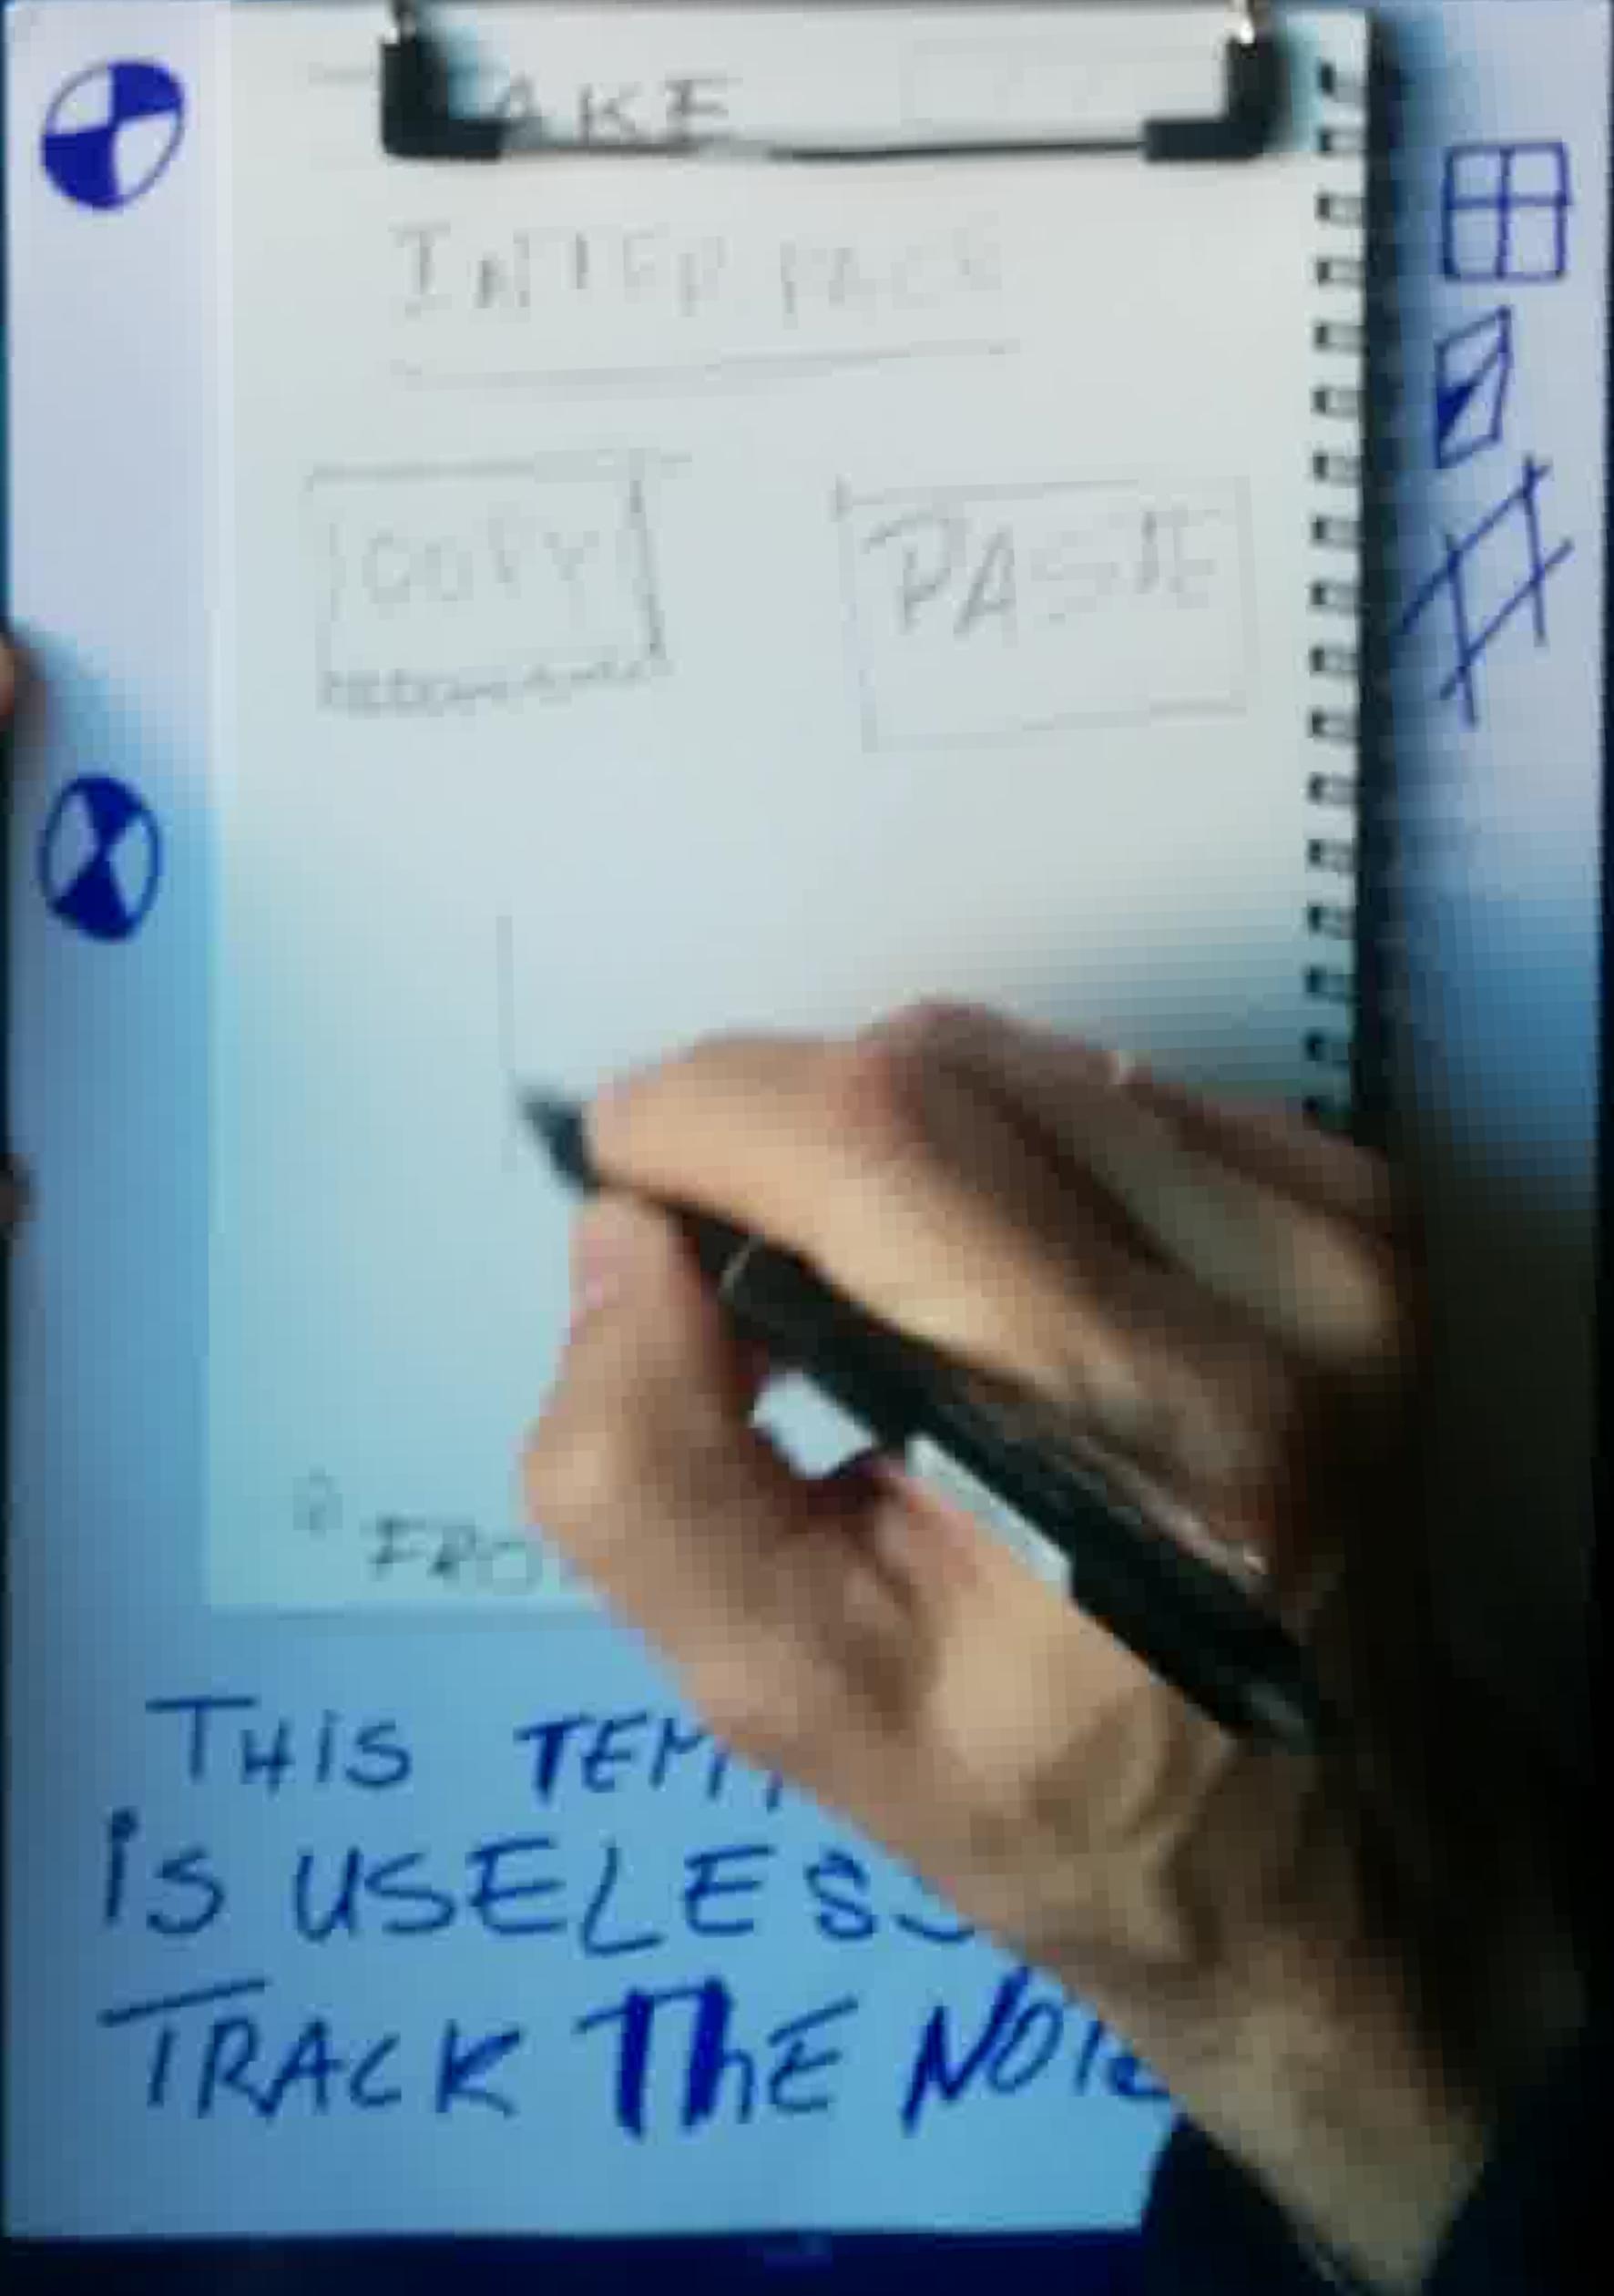 AKE
INTERFACE
COPY PASTE
FRO
THIS TEM
iS USELESS
TRACK ThE NOTE